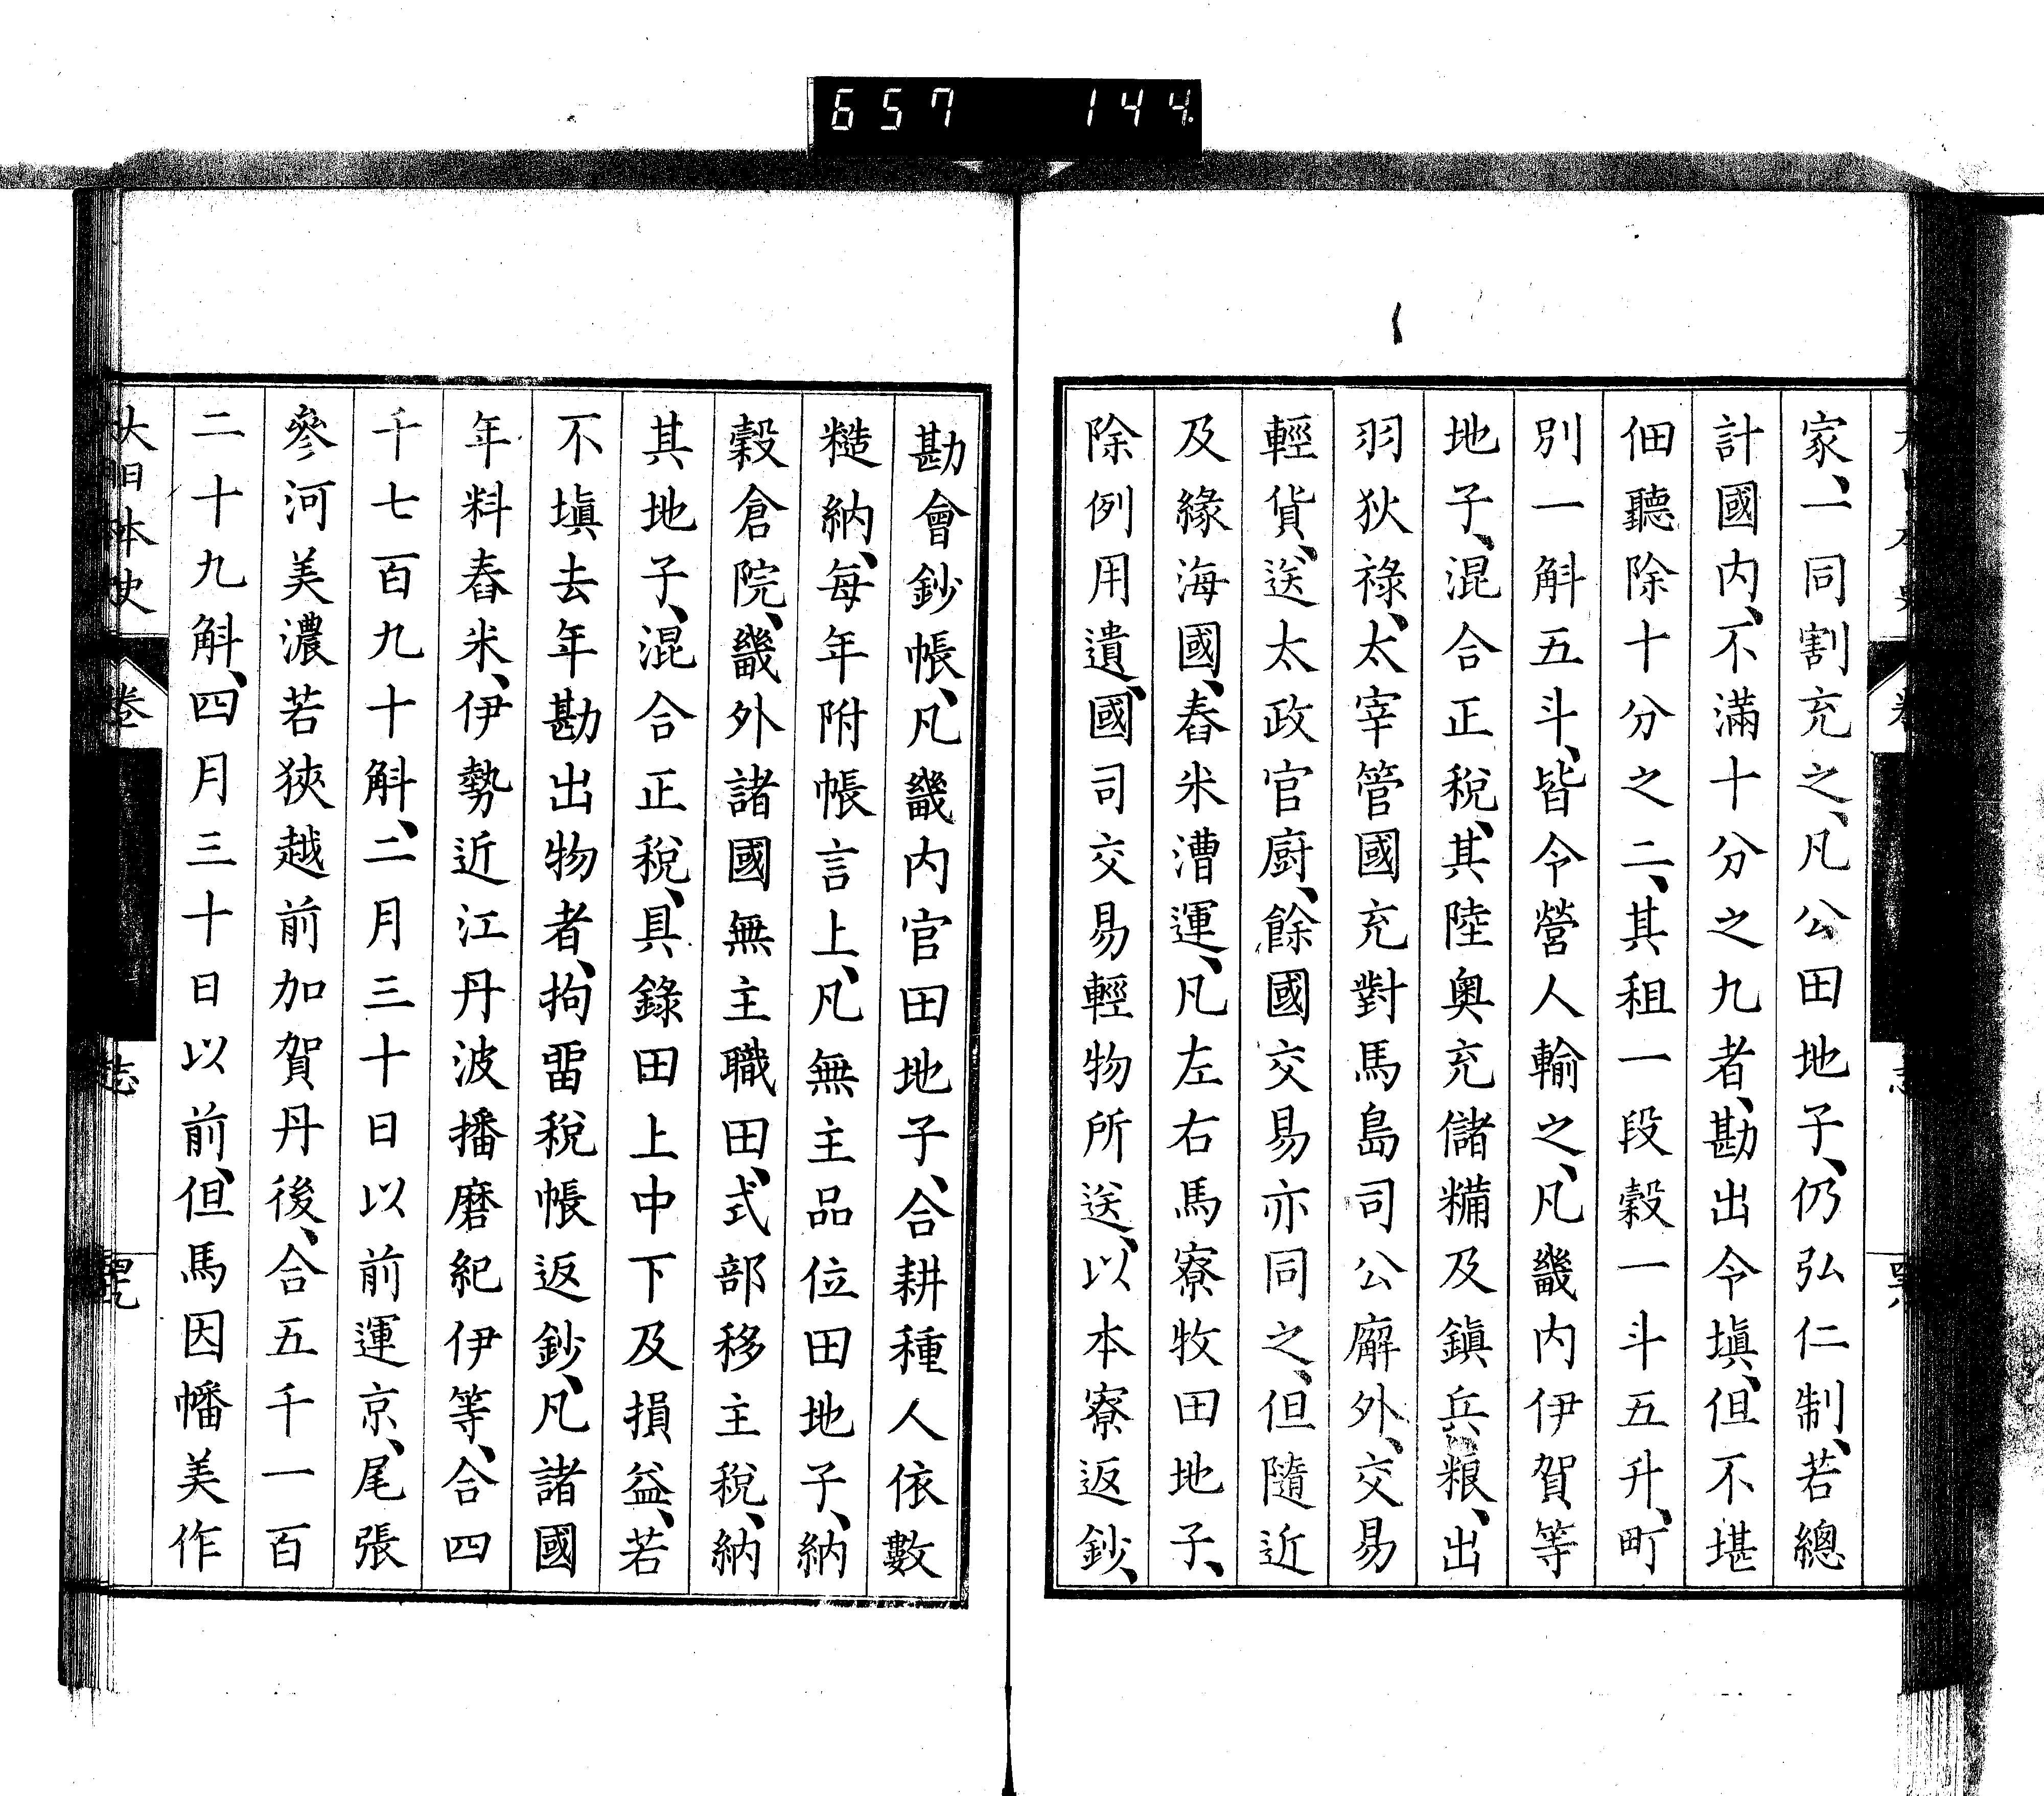 657 144
家、一同割充之、凡公田地子、仍弘仁制、若總
計國内、不滿十分之九者、勘出令塡、但不堪
佃聽除十分之二、其租一段穀一斗五升、町
別一斛五斗、皆令營人輸之、凡畿内伊賀等
地子、混合正稅、其陸奧充儲糒及鎭兵粮、出
羽狄祿、太宰管國充對馬島司公廨外、交易
輕貨、送太政官厨、餘國交易亦同之、但隨近
及緣海國、舂米漕運、凡左右馬寮牧田地子、
除例用遺、國司交易輕物所送、以本寮返鈔、
勘會鈔帳、凡畿内官田地子、合耕種人依數
糙納、每年附帳言上、凡無主品位田地子、納
穀倉院、畿外諸國無主職田、式部移主稅、納
其地子、混合正稅、具錄田上中下及損益、若
不塡去年勘出物者、拘畱稅帳返鈔、凡諸國
年料舂米、伊勢近江丹波播磨紀伊等、合四
千七百九十斛、二月三十日以前運京、尾張
參河美濃若狹越前加賀丹後、合五千一百
二十九斛、四月三十日以前、但馬因幡美作
大日本史 卷 志